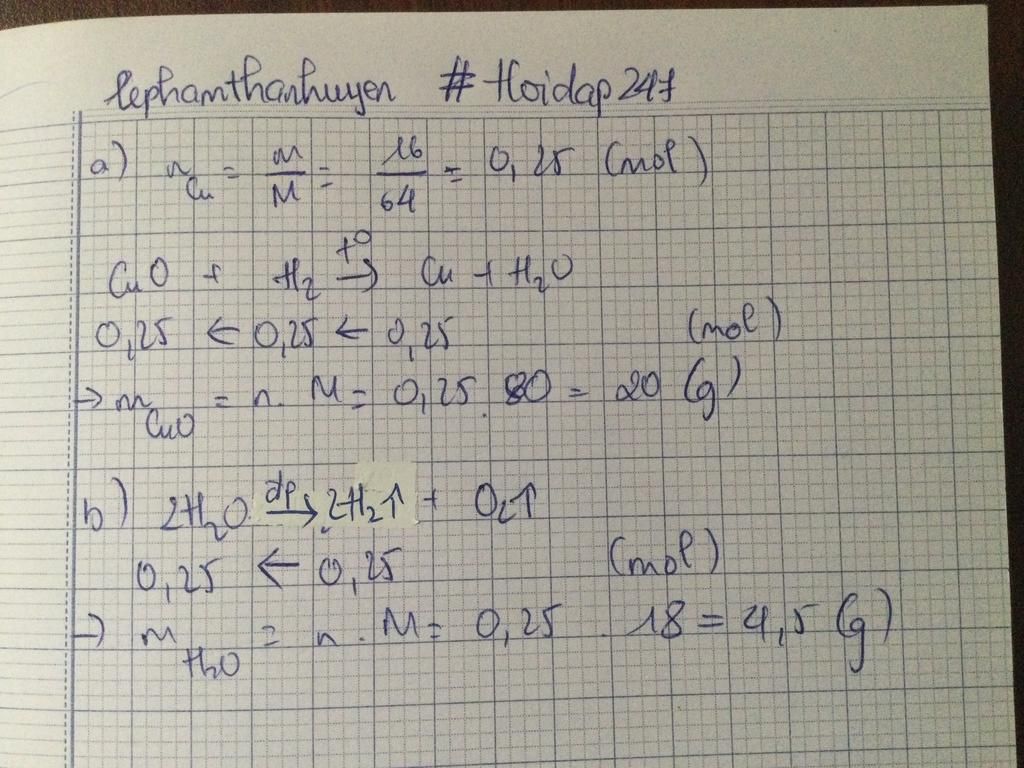 lephamthanhuyen #Hoidap247
a) n Cu = m/M = 16/64 = 0,25 (mol)
CuO + H2 →(t°) Cu + H2O
0,25 ← 0,25 ← 0,25 (mol)
→ m CuO = n . M = 0,25 . 80 = 20 (g)
b) 2H2O →(đp) 2H2↑ + O2↑
0,25 ← 0,25 (mol)
→ m H2O = n . M = 0,25 . 18 = 4,5 (g)